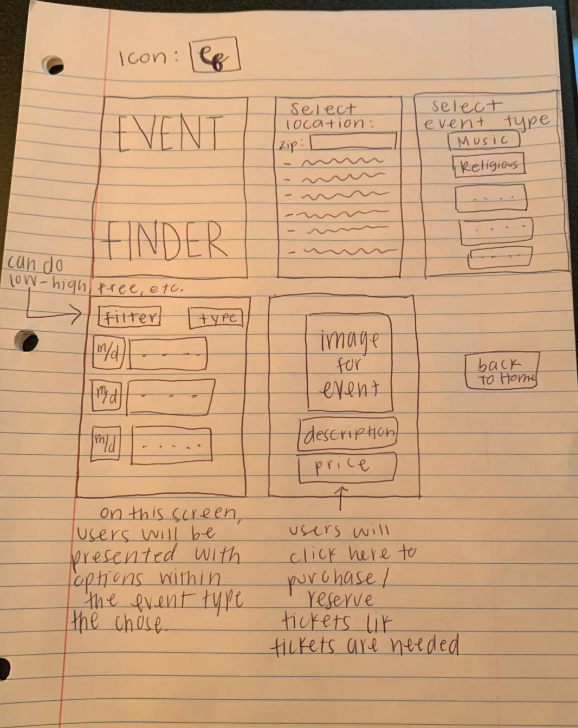 Icon:
EVENT
FINDER
Select
location:
Zip:
select
event type
Music
Religious
can do
low-high, free, etc.
filter
type
m/d
m/d
m/d
image
for
event
description
price
back
to Home
on this screen,
users will be
presented with
options within
the event type
the chose.
users will
click here to
purchase/
reserve
tickets (if
tickets are needed